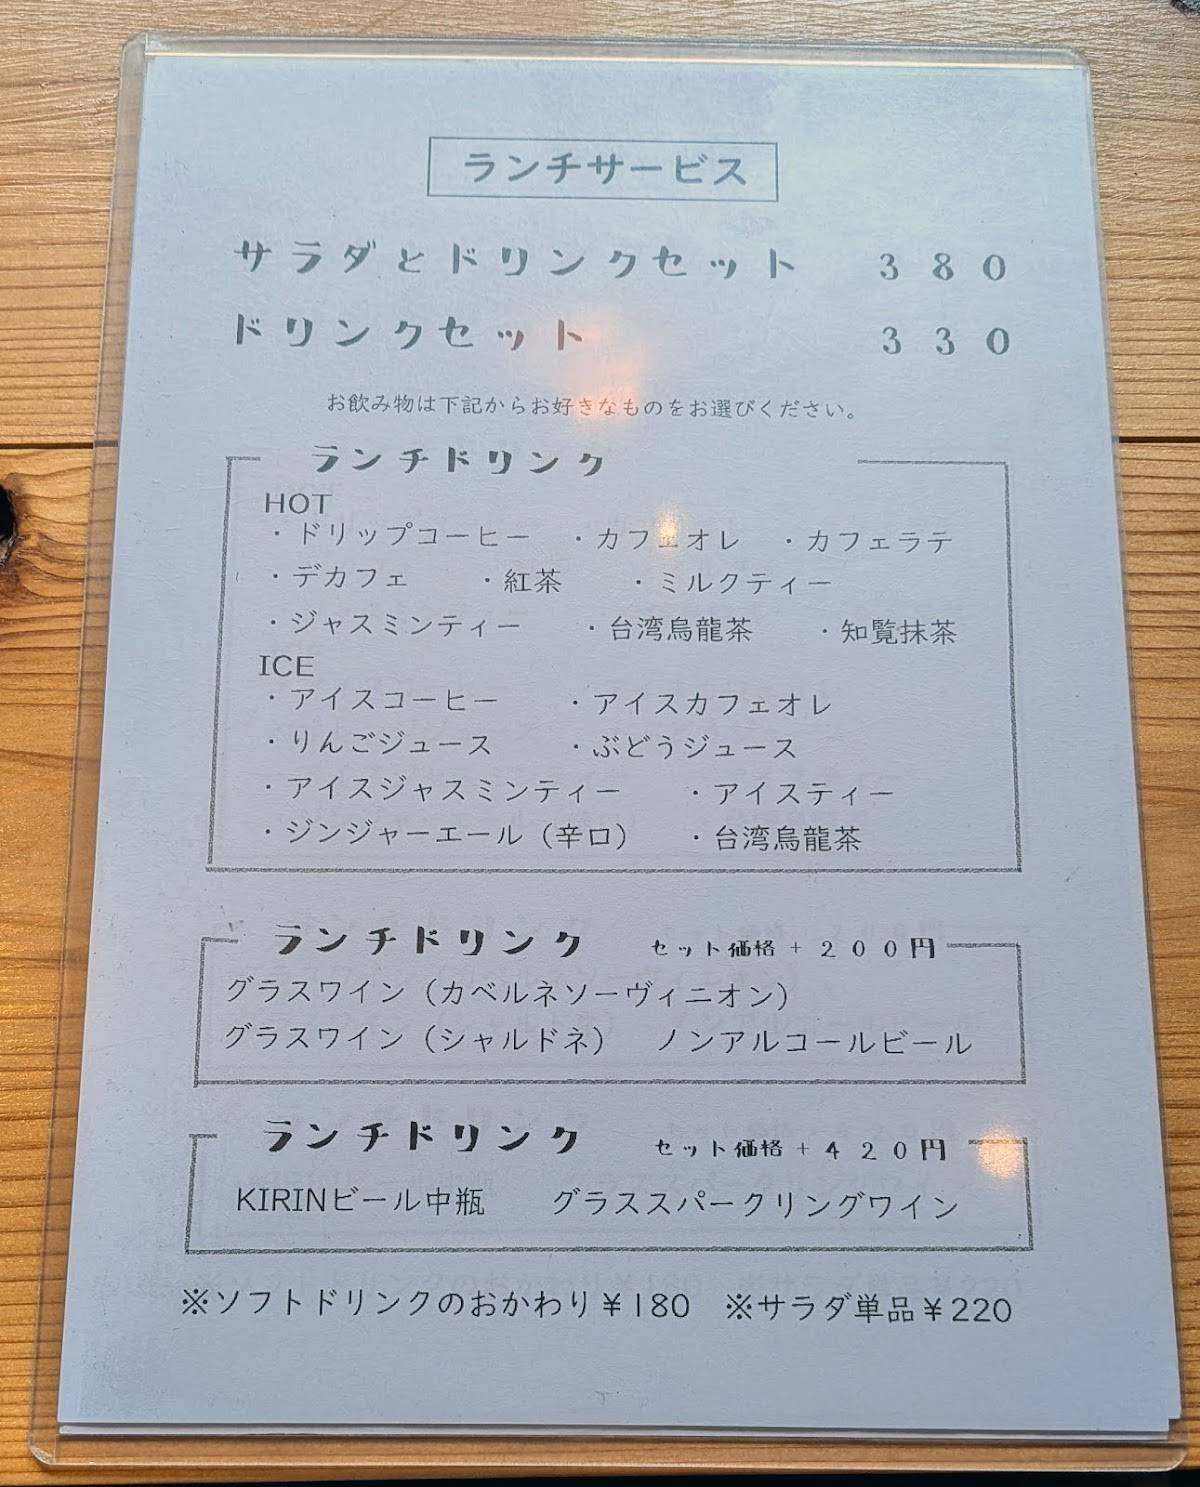 ランチサービス
サラダとドリンクセット 380
ドリンクセット 330
お飲み物は下記からお好きなものをお選びください。
ランチドリンク
HOT
・ドリップコーヒー ・カフェオレ ・カフェラテ
・デカフェ ・紅茶 ・ミルクティー
・ジャスミンティー ・台湾烏龍茶 ・知覧抹茶
ICE
・アイスコーヒー ・アイスカフェオレ
・りんごジュース ・ぶどうジュース
・アイスジャスミンティー ・アイスティー
・ジンジャーエール（辛口） ・台湾烏龍茶
ランチドリンク セット価格+200円
グラスワイン（カベルネソーヴィニオン）
グラスワイン（シャルドネ） ノンアルコールビール
ランチドリンク セット価格+420円
KIRINビール中瓶 グラススパークリングワイン
※ソフトドリンクのおかわり¥180 ※サラダ単品¥220